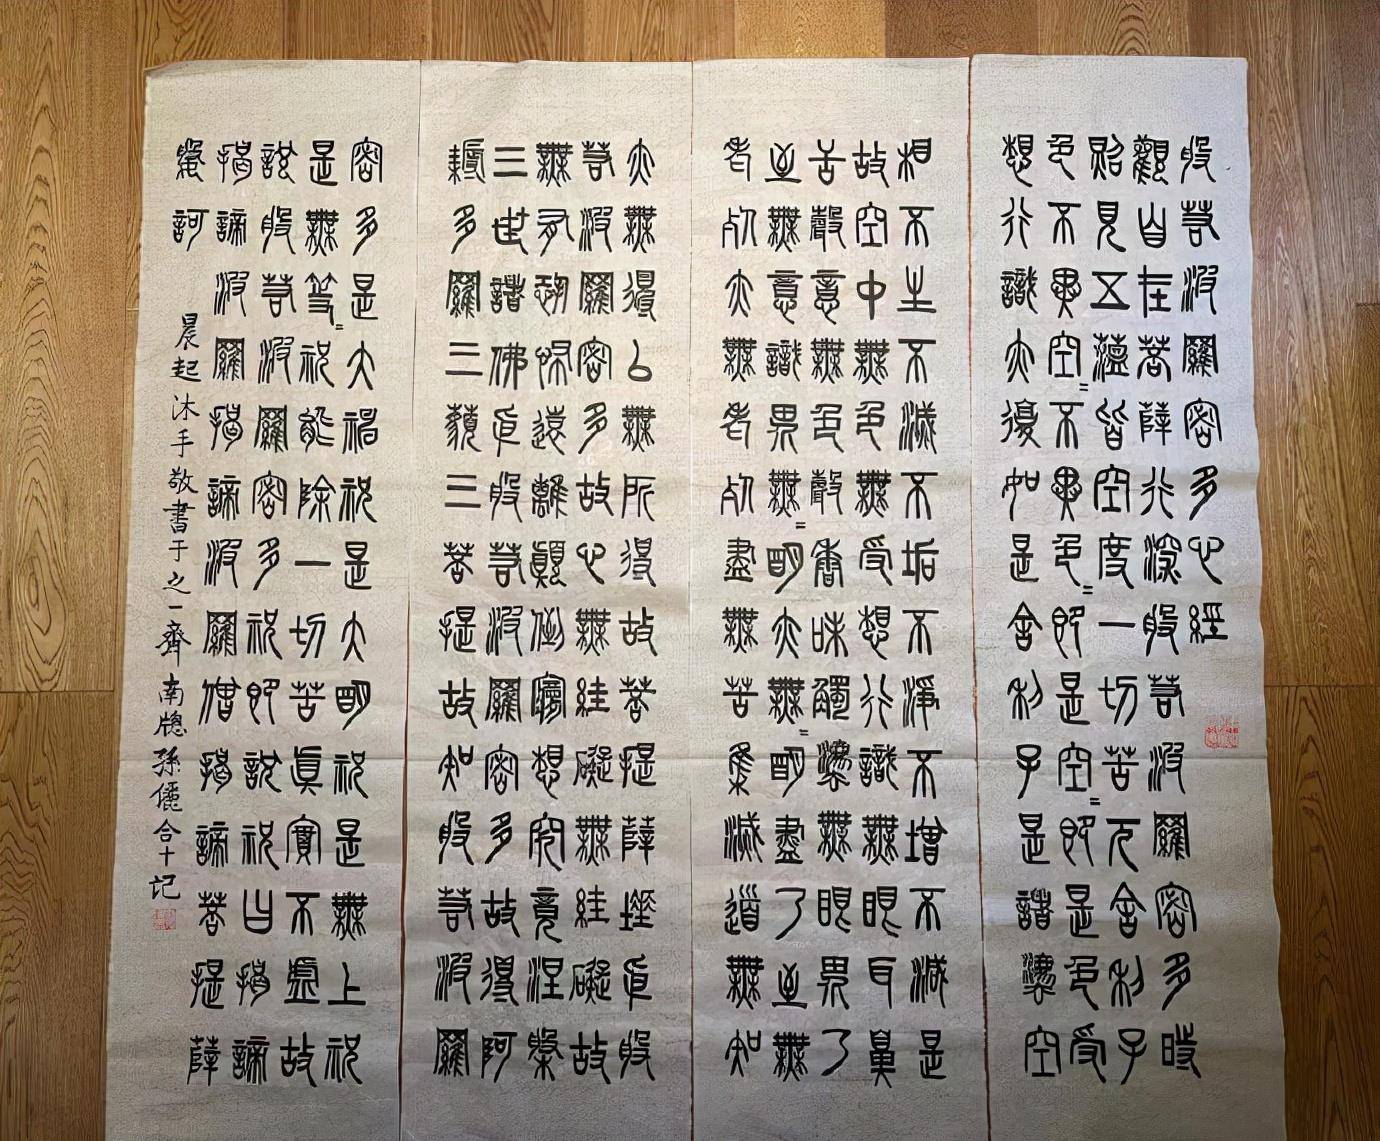 般若波羅密多心經
觀自在菩薩行深般若波羅密多時
照見五蘊皆空度一切苦厄舍利子
色不異空=不異色=即是空=即是色受
想行識亦復如是舍利子是諸灋空
相不生不滅不垢不淨不增不減是
故空中無色無受想行識無眼耳鼻
舌聲意無色聲香味觸灋無眼界乃
至無意識界無=明亦無=明盡乃至無
老死亦無老死盡無苦集滅道無知
亦無得以無所得故菩提薩埵依般
若波羅密多故心無罣礙無罣礙故
無有恐怖遠離顛倒夢想究竟涅槃
三世諸佛依般若波羅密多故得阿
耨多羅三藐三菩提故知般若波羅
密多是大神祝是大明祝是無上祝
是無等=祝能除一切苦真實不虛故
說般若波羅密多祝即說祝曰揭諦
揭諦波羅揭諦波羅僧揭諦菩提薩
訶
晨起沐手敬書于之一齋 南牕孫儷合十記